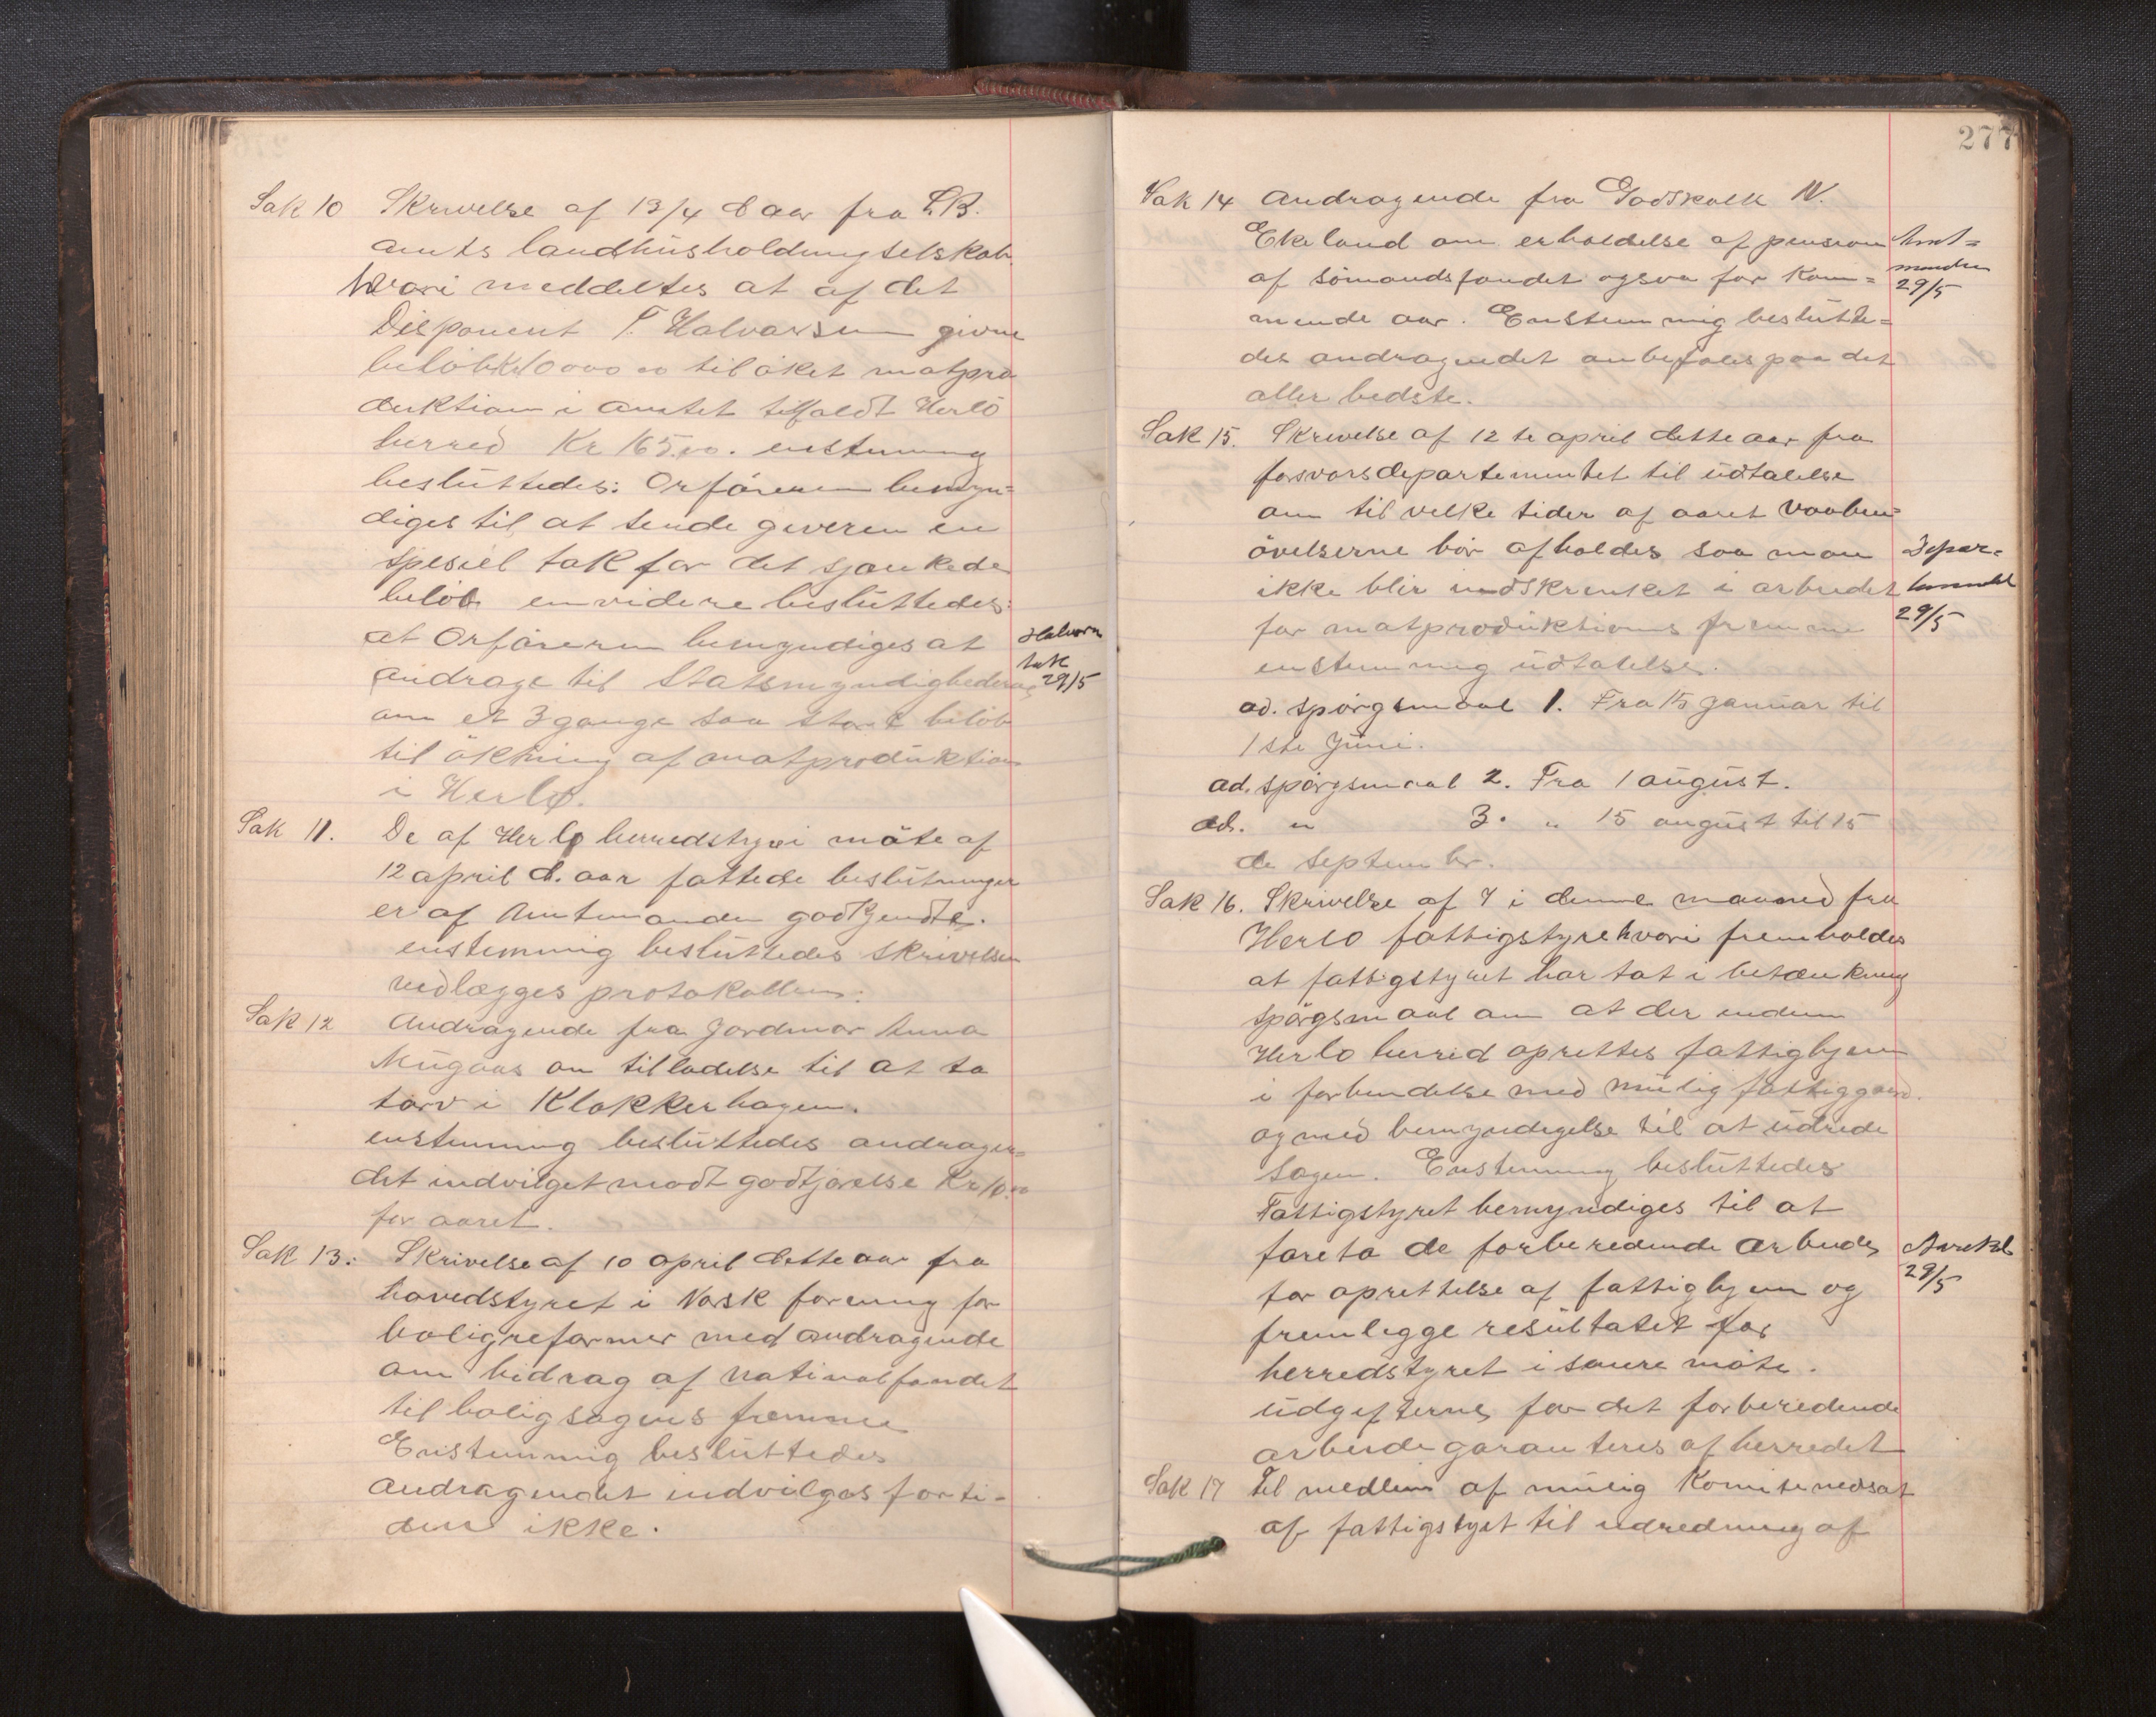 Sak 10 Skrivelse af 13/4 d aar fra S.B.
amts landhusholdningselskab
hvori meddeltes at af det
Disponent T. Halvorsen givne
beløb Kr 10000 00 til øket matpro
duktion i amtet tilfaldt Herlø
herred Kr 165.00. enstemmig
besluttedes: Orføreren bemyn=
diges til at sende giveren en
spesiel tak for det sjænkede
beløb envidere besluttedes:
at Orføreren bemyndiges at
Halvorsen
tak
29/5
andrage til Statsmyndighederne
om et 3 gange saa stort beløb
til økning af matproduktion
i Herlø.
Sak 11. De af Herlø herredstyre i møte af
12 april d. aar fattede beslutninger
er af Amtmanden godkjendte.
enstemmig besluttedes skrivelsen
vedlægges protokollen.
Sak 12 Andragende fra Jordmor Anna
Mugaas om tilladelse til at ta
torv i Klokkerhagen.
enstemmig besluttedes andragen=
det indvilget modt godtjørelse Kr 10.00
for aaret.
Sak 13: Skrivelse af 10 april dette aar fra
hovedstyret i Norsk forening for
boligreformer med andragende
om bidrag af nationalfondet
til boligsagens fremme
Enstemmig besluttedes
andragendet indvilges for ti-
den ikke.
277
Sak 14 Andragende fra Godskalk N.
Ekeland om erholdelse af pension
Amt=
manden
29/5
af sømandsfondet ogsaa for kom=
mende aar. Enstemmig beslutte=
des andragendet anbefales paa det
aller bedste.
Sak 15. Skrivelse af 12 te april dette aar fra
forsvarsdepartementet til udtalelse
om til velke tider af aaret vaaben=
øvelserne bør afholdes saa man
Depar=
tementet
29/5
ikke blir indskrenket i arbeidet
for matproduktions fremme
enstemmig udtalelse.
ad. spørgsmaal 1. Fra 15 januar til
1ste Juni.
ad. spørgsmaal 2. Fra 1 august.
ad. " 3. " 15 august til 15
de septembr.
Sak 16. Skrivelse af 7 i denne maaned fra
Herlø fattigstyre hvori fremholdes
at fattigstyret har tat i betænkning
spørgsmaal om at der inden
Herlø herred oprettes fattighjem
i forbindelse med mulig fattiggaard.
og med bemyndigelse til at udrede
sagen. Enstemmig besluttedes
Fattigstyret bemyndiges til at
foreta de forberedende arbeider
29/5
for oprettelse af fattighjem og
fremlegge resultatet for
herredstyret i senere møte.
udgifterne for det forberedende
arbeide garanteres af herredet
Sak 17 Til medlem af mulig komite nedsat
af fattigstyret til udredning af